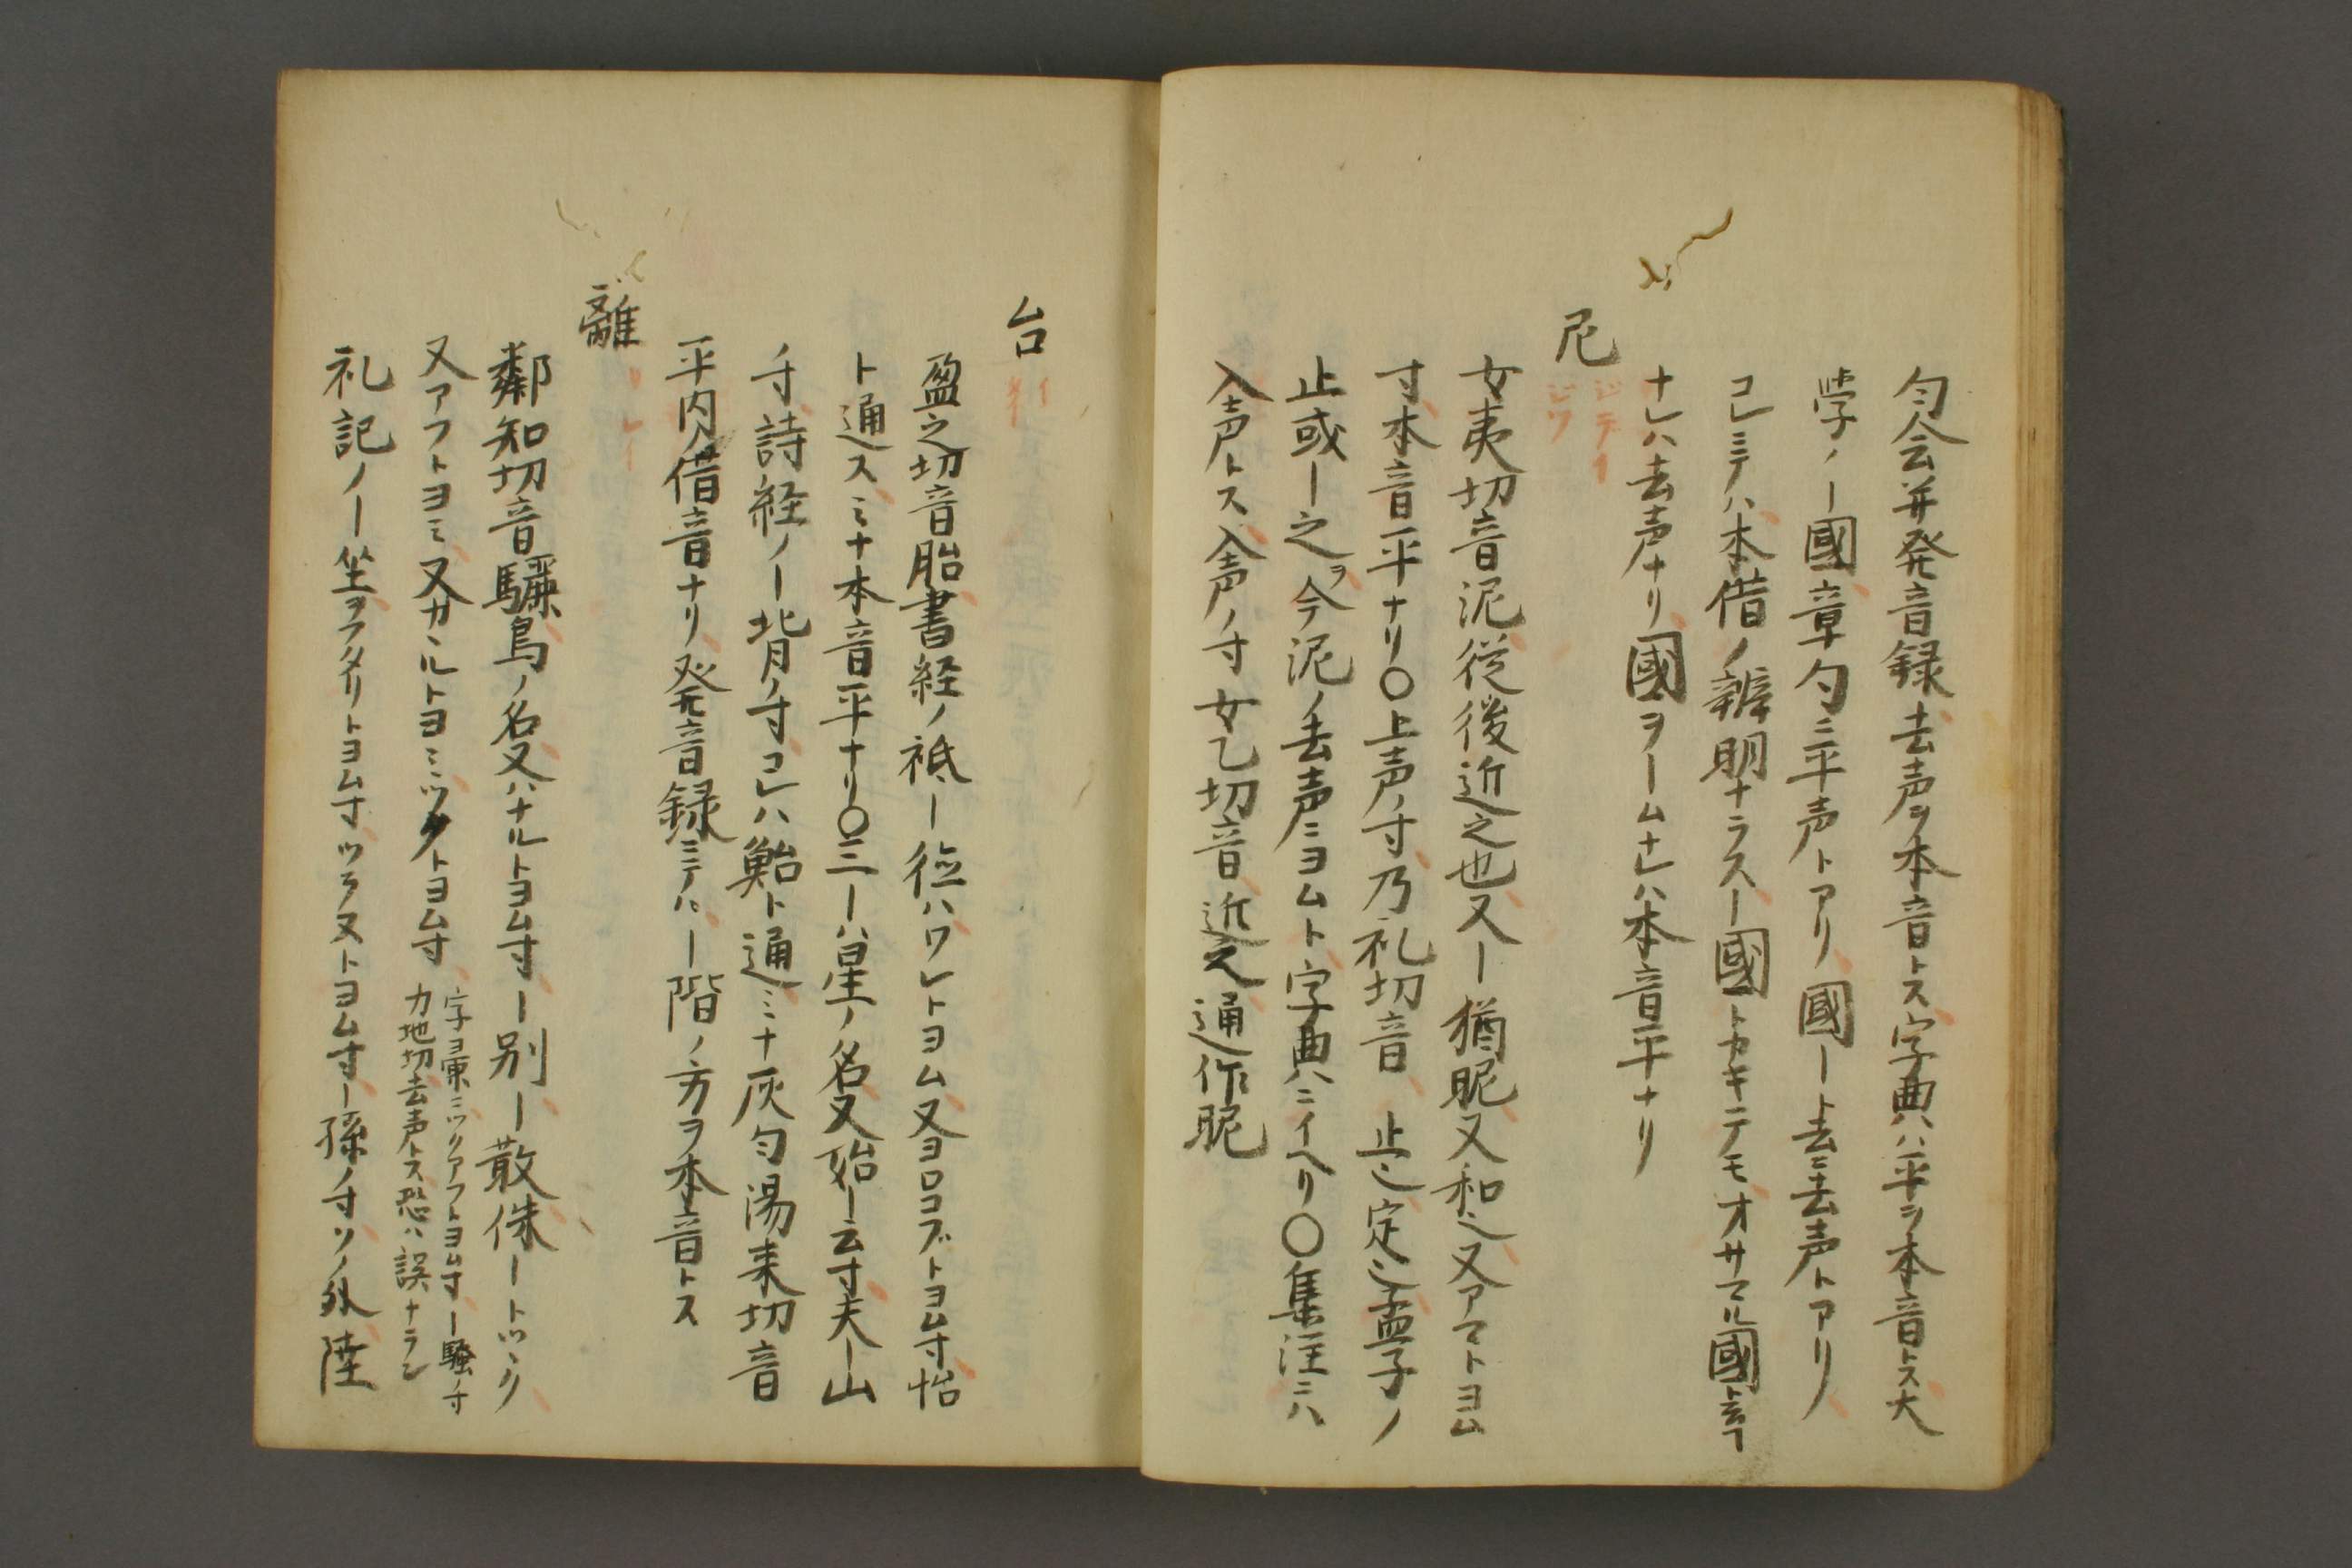 匀会并発音録去声ヲ本音トス字典ハ平ヲ本音トス大
学ノ｜國章勺ニ平声トアリ國｜ト去ニ去声トアリ
コレミテハ本借ノ辨明ナラス｜國トカキテモオサマル國ト云フ
ナレハ去声ナリ國ヲ｜ムナレハ本音平ナリ
尼
ジデイ
ジツ
女夷切音泥従後近之也又｜猶昵又和之又アマトヨム
寸本音平ナリ〇上声ノ寸乃礼切音 止之定之孟子ノ
止或｜之ヲ今泥ノ去声ニヨムト字典ハニイヘリ〇集注ニハ
入声トス入声ノ寸女乙切音近之通作昵
台
イ
盈之切音胎書経ノ祗｜徳ハワレトヨム又ヨロコブトヨム寸怡
ト通スミナ本音平ナリ〇三｜ハ星ノ名又始｜云寸夫｜山
ノ寸詩経ノ｜背ノ寸コレハ鮐ト通ミナ灰匀湯来切音
平内ノ借音ナリ発音録ミテハ｜階ノ方ヲ本音トス
離
リレイ
鄰知切音驪鳥ノ名又ハナルトヨム寸｜別｜散侏｜トツヽリ
又アフトヨミ又カヽルトヨミツクトヨム寸
字彙ニツリアフトヨム寸｜騒ノ寸
力地切去声トス恐ハ誤ナラン
礼記ノ｜坐ヲフタリトヨム寸ツラヌトヨム寸｜孫ノ寸ソノ外陸